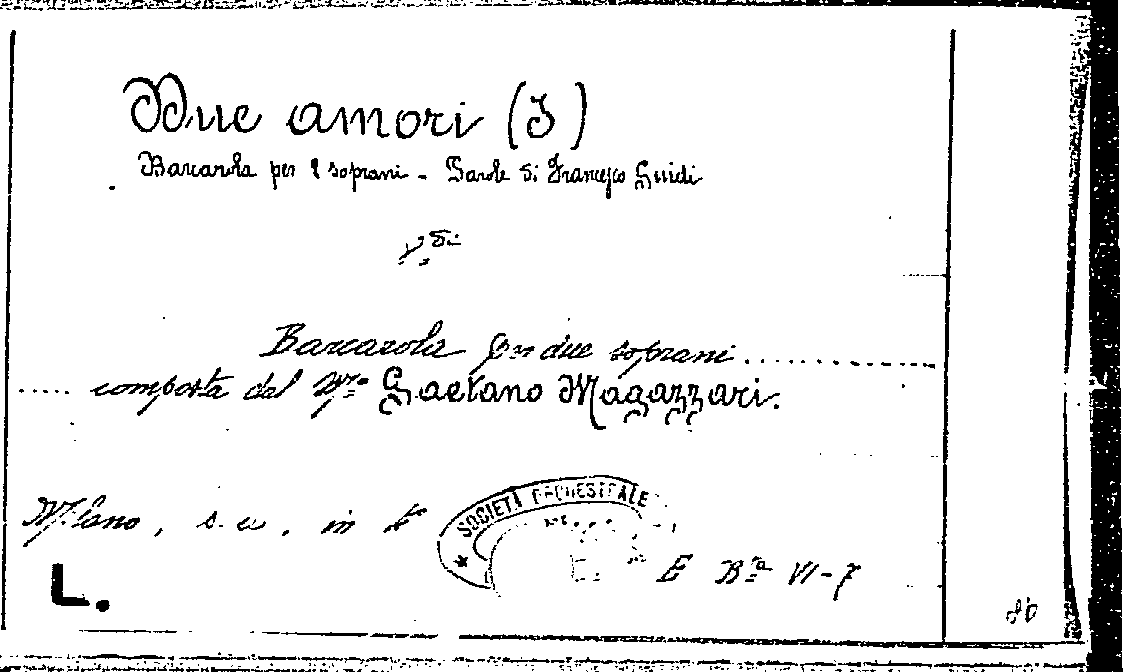 Due amori (I)
Barcarola per 2 soprani - Parole di Francesco Guidi
V. di
Barcarola per due soprani ...............
..... composta dal M.º Gaetano Magazzari.
Milano, s. a., in 4º
SOCIETÀ ORCHESTRALE
E B.ª VI-7
L.